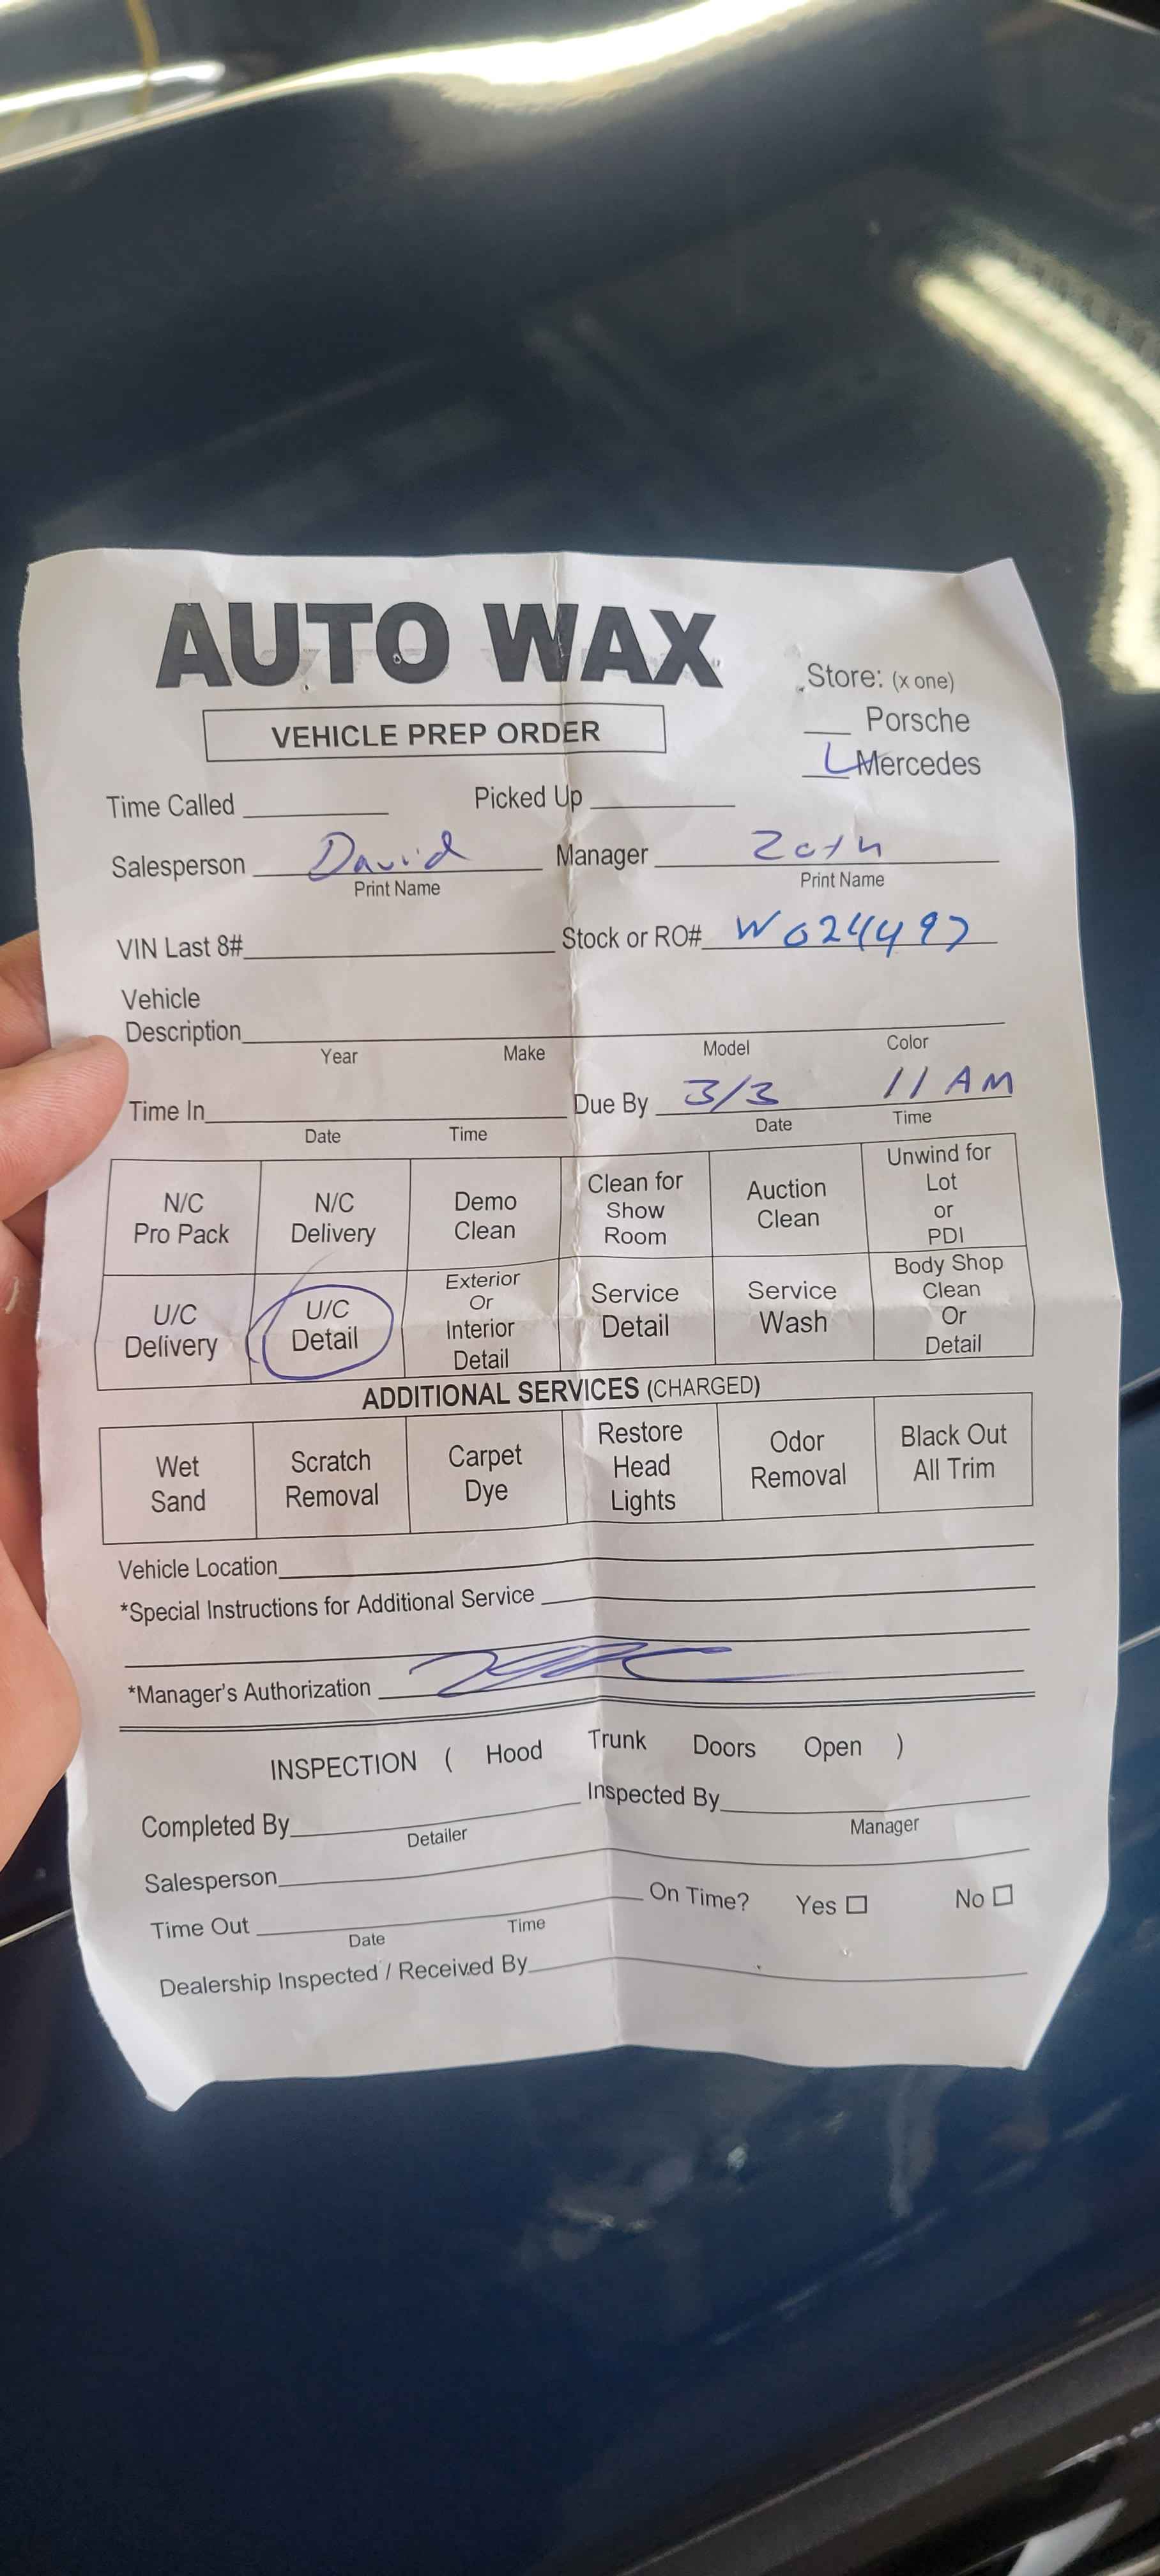 AUTO WAX
Store: (x one)
VEHICLE PREP ORDER
___ Porsche
___ Mercedes
Time Called ___ Picked Up ___
Salesperson David Manager
Print Name Print Name
VIN Last 8# ___ Stock or RO# W024497
Vehicle
Description
Year Make Model Color
Time In ___ Due By 3/3 11 AM
Date Time Date Time
N/C Pro Pack
N/C Delivery
Demo Clean
Clean for Show Room
Auction Clean
Unwind for Lot or PDI
U/C Delivery
U/C Detail
Exterior Or Interior Detail
Service Detail
Service Wash
Body Shop Clean Or Detail
ADDITIONAL SERVICES (CHARGED)
Wet Sand
Scratch Removal
Carpet Dye
Restore Head Lights
Odor Removal
Black Out All Trim
Vehicle Location
*Special Instructions for Additional Service
*Manager's Authorization
INSPECTION ( Hood Trunk Doors Open )
Completed By ___ Inspected By
Detailer Manager
Salesperson
Time Out ___ On Time? Yes ☐ No ☐
Date Time
Dealership Inspected / Received By